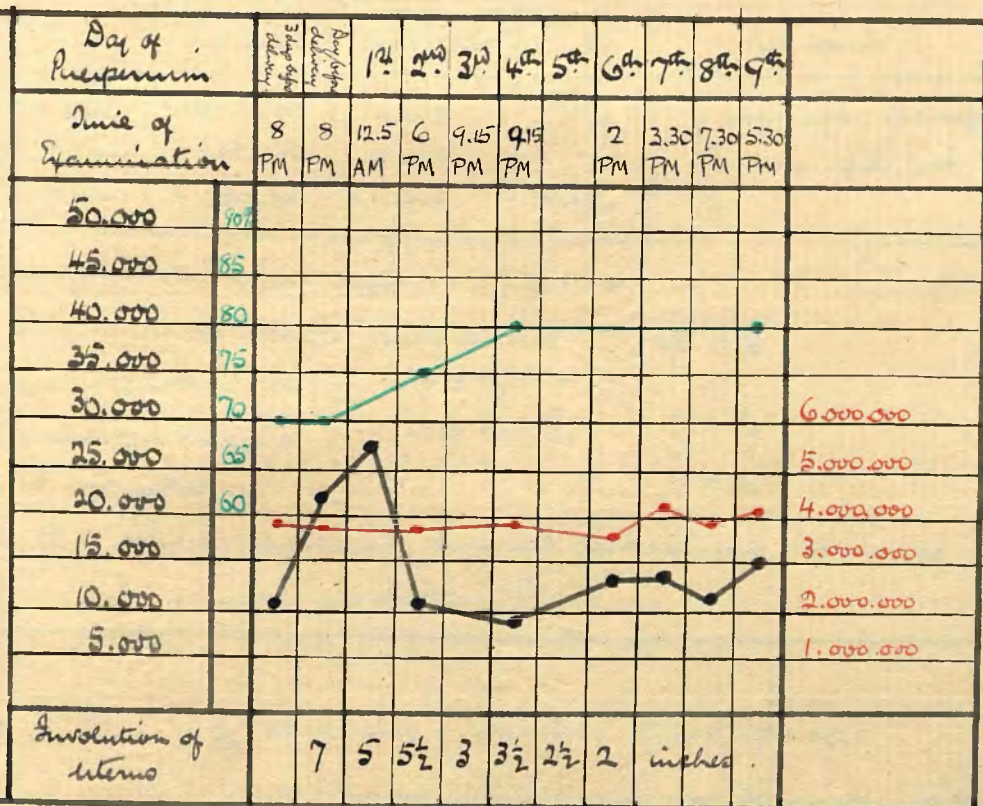 Day of
Puerperium
3 days before
delivery
Day before
delivery
1st 2nd 3rd 4th 5th 6th 7th 8th 9th
Time of
Examination
8 PM 8 PM 12.5 AM 6 PM 9.15 PM 9.15 PM 2 PM 3.30 PM 7.30 PM 5.30 PM
50.000 90%
45.000 85
40.000 80
35.000 75
30.000 70 6.000.000
25.000 65 5.000.000
20.000 60 4.000.000
15.000 3.000.000
10.000 2.000.000
5.000 1.000.000
Involution of
Uterus
7 5 5½ 3 3½ 2½ 2 inches.